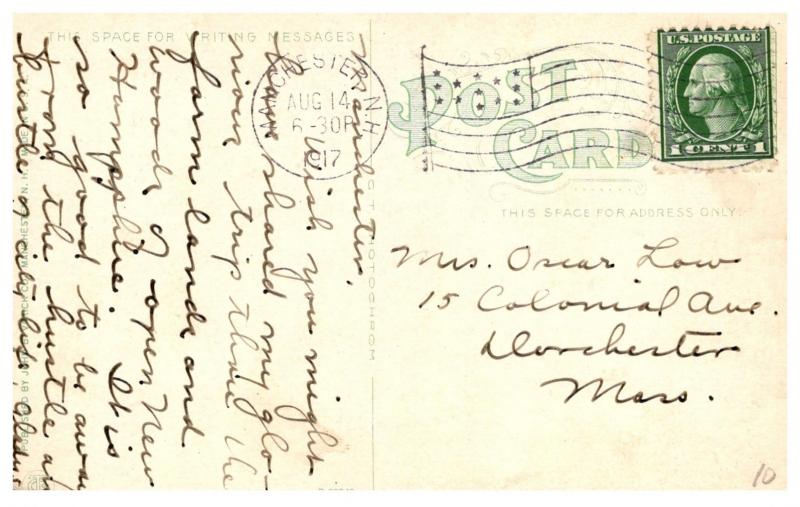 THIS SPACE FOR WRITING MESSAGES
Manchester,
I wish you might
have shared my glo-
rious trip thru the
farm lands and
woods of open New
Hampshire. It is
so good to be away
from the hustle and
bustle of city life.
MANCHESTER, N.H.
AUG 14
6-30P
1917
POST
CARD
U.S. POSTAGE
1 CENT 1
THIS SPACE FOR ADDRESS ONLY.
Mrs. Oscar Low
15 Colonial Ave.
Dorchester
Mass.
10